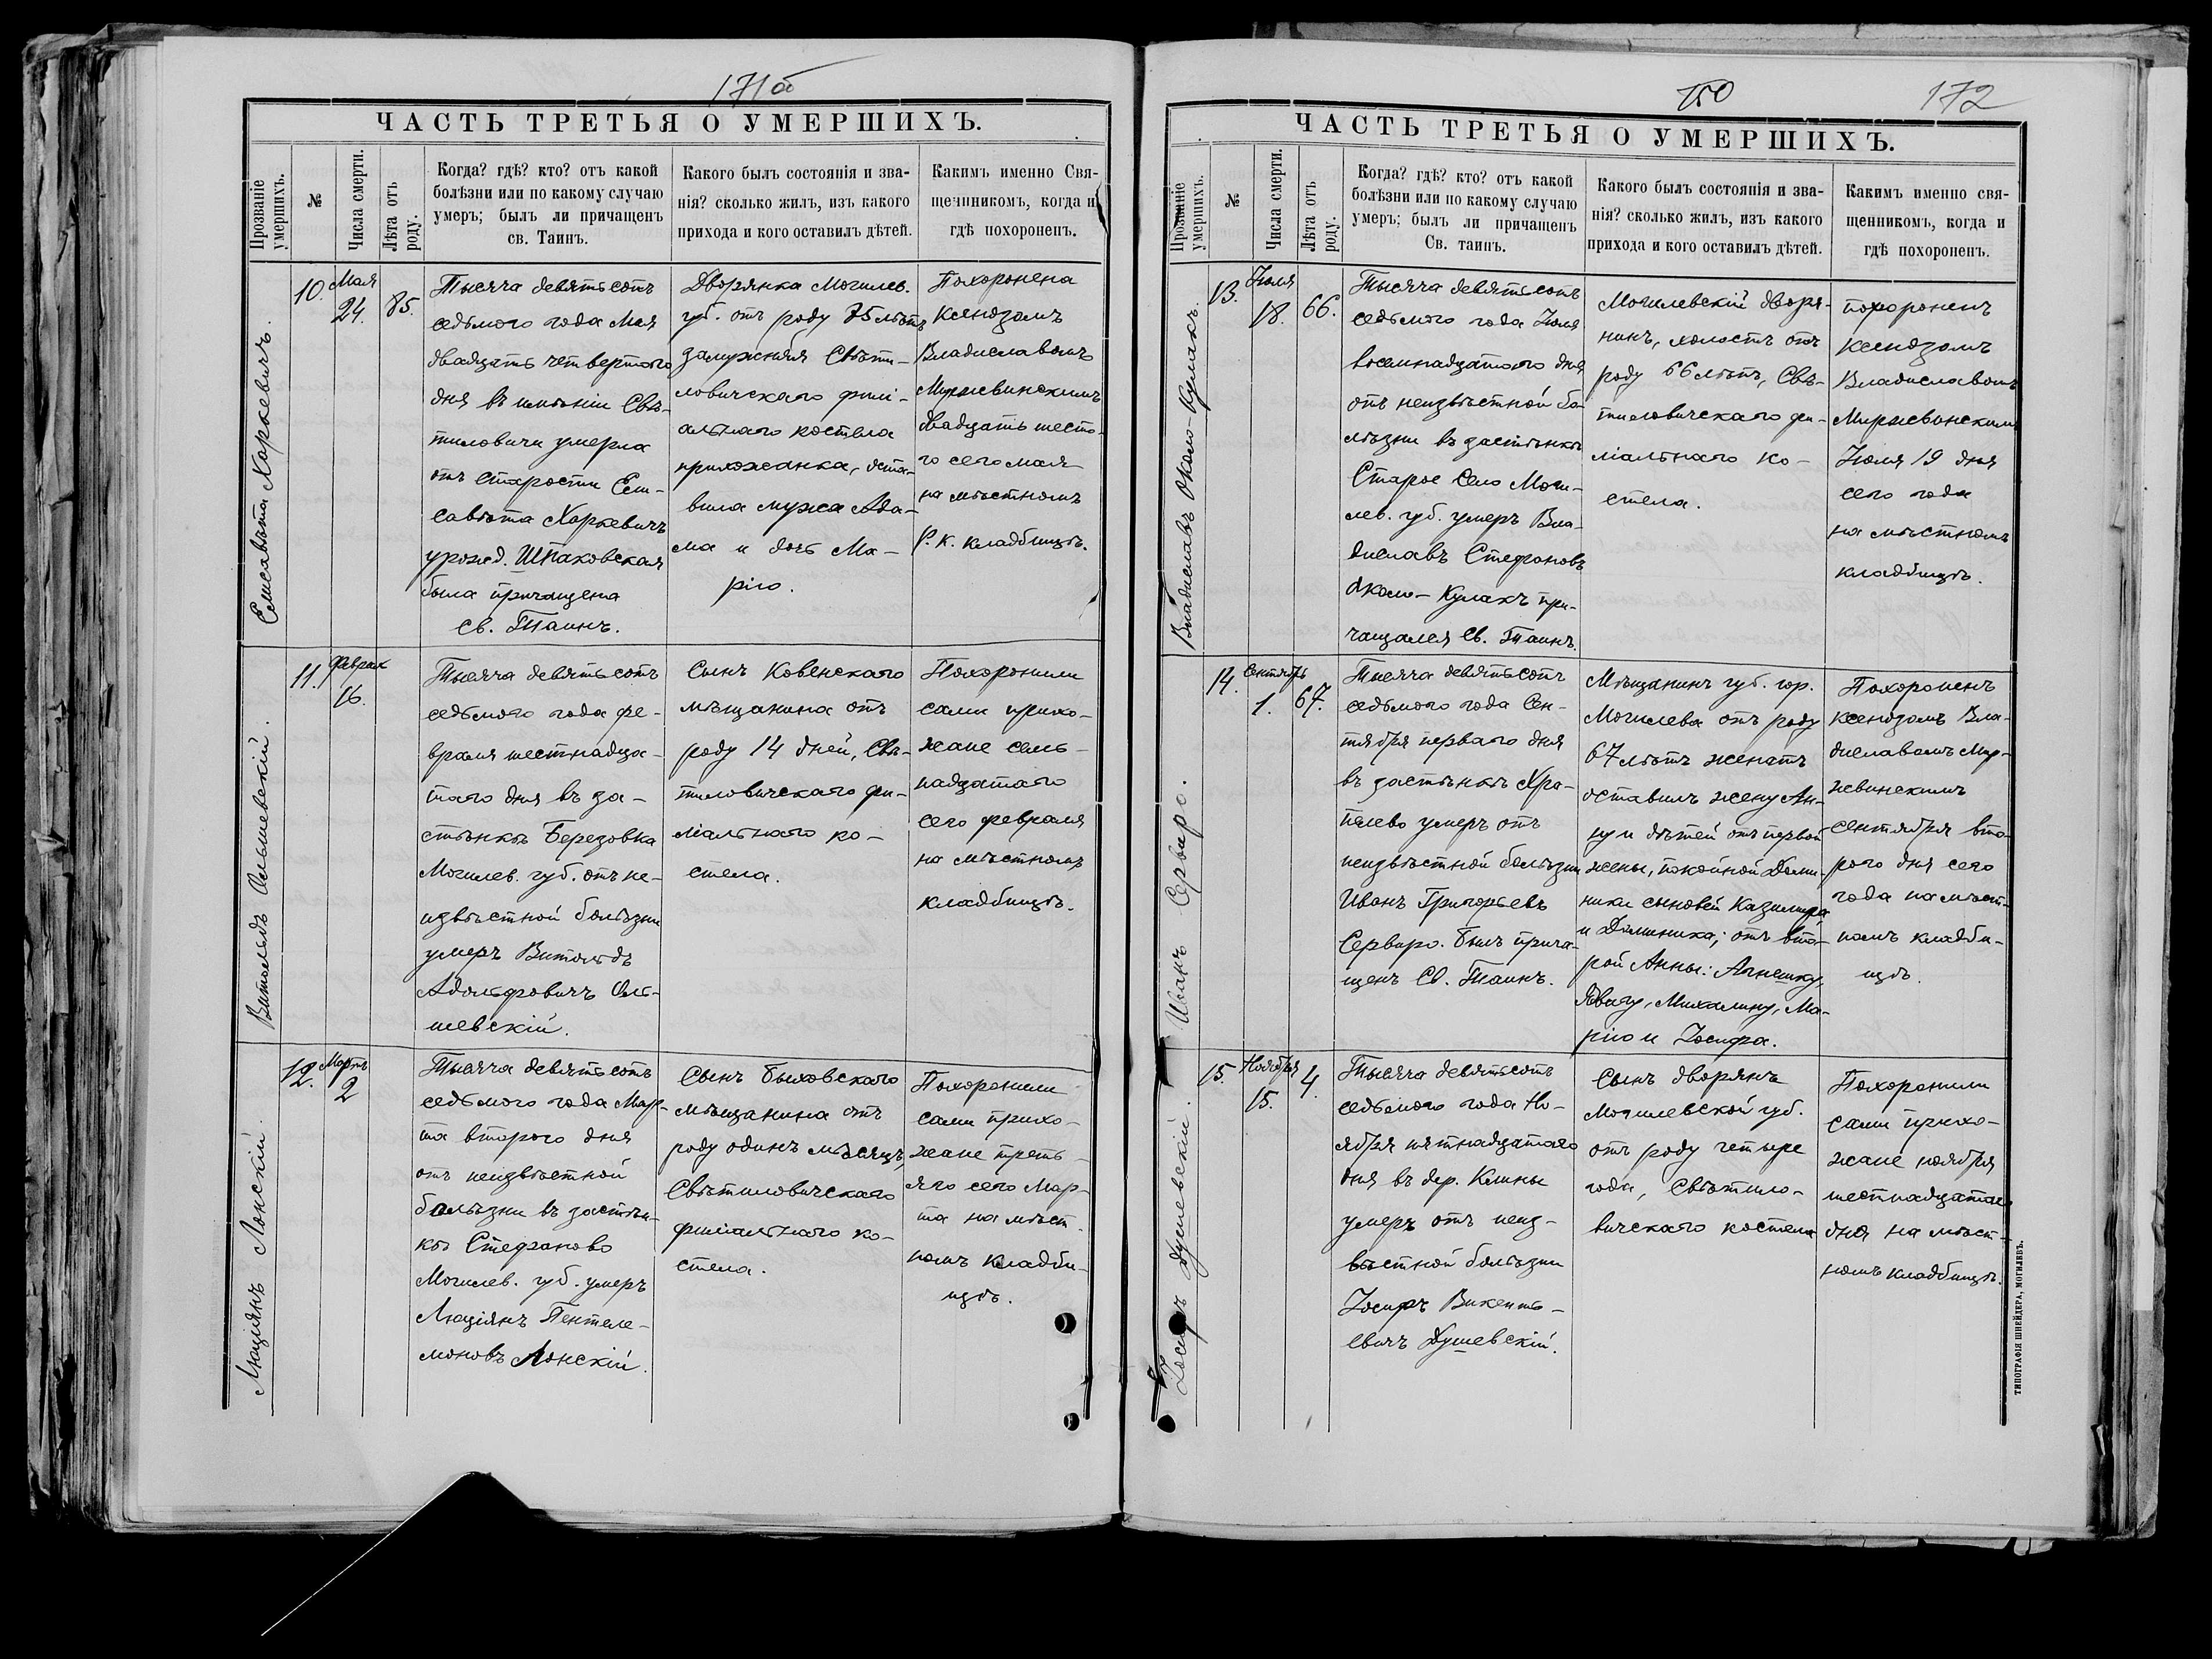 171об
ЧАСТЬ ТРЕТЬЯ О УМЕРШИХЪ.
Прозваніе умершихъ.
№
Числа смерти.
Лѣта отъ роду.
Когда? гдѣ? кто? отъ какой
болѣзни или по какому случаю
умеръ; былъ ли причащенъ
св. Таинъ.
Какого былъ состоянія и зва-
нія? сколько жилъ, изъ какого
прихода и кого оставилъ дѣтей.
Какимъ именно Свя-
щенникомъ, когда и
гдѣ похороненъ.
Елисавѣта Харкевичъ.
10.
Мая
24.
85.
Тысяча девятьсотъ
седьмого года Мая
двадцать четвертого
дня въ имѣніи Свѣ-
тиловичи умерла
отъ старости Ели-
савѣта Харкевичъ
урожд. Шпаковская
была причащена
Св. Таинъ.
Дворянка Могилев.
губ. отъ роду 85 лѣтъ
замужняя Свѣти-
ловичскаго филі-
альнаго костела
прихожанка, оста-
вила мужа Ада-
ма и дочь Ма-
рію.
Похоронена
Ксендзомъ
Владиславомъ
Миржвинскимъ
двадцать шесто-
го сего мая
на мѣстномъ
Р. К. кладбищѣ.
Витольдъ Ольшевскій.
11.
Феврал
16.
Тысяча девятьсотъ
седьмого года фе-
враля шестнадца-
таго дня въ за-
стѣнкѣ Березовка
Могилев. губ. отъ не-
извѣстной болѣзни
умеръ Витольдъ
Адольфовичъ Оль-
шевскій.
Сынъ Ковенскаго
мѣщанина отъ
роду 14 дней, Свѣ-
тиловичскаго фи-
ліальнаго ко-
стела.
Похоронили
сами прихо-
жане семь-
надцатаго
сего февраля
на мѣстномъ
кладбищѣ.
Люціянъ Лонскій.
12.
Мартъ
2
Тысяча девятьсотъ
седьмого года Мар-
та второго дня
отъ неизвѣстной
болѣзни въ застѣн-
кѣ Стефаново
Могилев. губ. умеръ
Люціянъ Пентеле-
моновъ Лонскій.
Сынъ Быховскаго
мѣщанина отъ
роду одинъ мѣсяцъ,
Свѣтиловичскаго
филіальнаго ко-
стела.
Похоронили
сами прихо-
жане треть-
яго сего Мар-
та на мѣст-
номъ кладби-
щѣ.
150
172
ЧАСТЬ ТРЕТЬЯ О УМЕРШИХЪ.
Прозваніе умершихъ.
№
Числа смерти.
Лѣта отъ роду.
Когда? гдѣ? кто? отъ какой
болѣзни или по какому случаю
умеръ; былъ ли причащенъ
Св. таинъ.
Какого былъ состоянія и зва-
нія? сколько жилъ, изъ какого
прихода и кого оставилъ дѣтей.
Какимъ именно свя-
щенникомъ, когда и
гдѣ похороненъ.
Владиславъ Около-Кулакъ.
13.
Іюля
18.
66.
Тысяча девятьсотъ
седьмого года Іюля
восемнадцатого дня
отъ неизвѣстной бо-
лѣзни въ застѣнкѣ
Старое Село Моги-
лев. губ. умеръ Вла-
диславъ Стефановъ
Около-Кулакъ при-
чащался Св. Таинъ.
Могилевскій дворя-
нинъ, холостъ отъ
роду 66 лѣтъ, Свѣ-
тиловичскаго фи-
ліальнаго ко-
стела.
похороненъ
Ксендзомъ
Владиславомъ
Миржвинскимъ
Іюля 19 дня
сего года
на мѣстномъ
кладбищѣ.
Иванъ Сервиро.
14.
Сентябрь
1.
67.
Тысяча девятьсотъ
седьмого года Сен-
тября перваго дня
въ застѣнкѣ Хра-
пелево умеръ отъ
неизвѣстной болѣзни
Иванъ Григорьевъ
Сервиро. Былъ прича-
щенъ Св. Таинъ.
Мѣщанинъ губ. гор.
Могилева отъ роду
67 лѣтъ женатъ
оставилъ жену Ан-
ну и дѣтей отъ первой
жены, покойной Доми-
ники сыновей Казимира
и Доминика; отъ вто-
рой Анны: Агнешку,
Ядвигу, Михалину, Ма-
рію и Іосифа.
Похороненъ
Ксендзомъ Вла-
диславомъ Мир-
жвинскимъ
сентября вто-
рого дня сего
года на мѣст-
номъ кладби-
щѣ.
Іосифъ Душевскій.
15.
Ноября
15.
4.
Тысяча девятьсотъ
седьмого года Но-
ября пятнадцатаго
дня въ дер. Клины
умеръ отъ неиз-
вѣстной болѣзни
Іосифъ Викенть-
евичъ Душевскій.
Сынъ дворянъ
Могилевской губ.
отъ роду четыре
года, Свѣтило-
вичскаго костела
Похоронили
сами прихо-
жане ноября
шестнадцатаго
дня на мѣст-
номъ кладбищѣ.
ТИПОГРАФІЯ ШНЕЙДЕРА, МОГИЛЕВЪ.